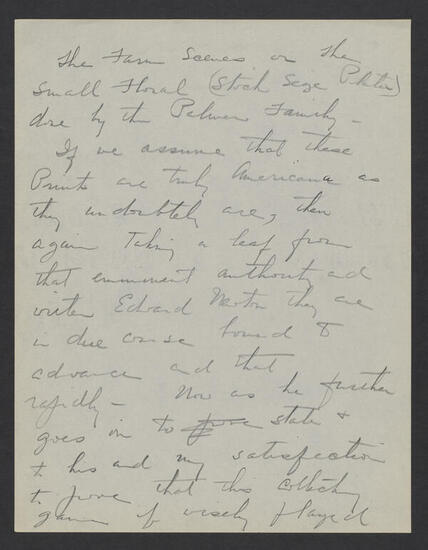 The Farm Scenes or the
Small Floral (Stock Size Plates)
done by the Palmer Family -
If we assume that these
Prints are truly Americana as
they undoubtely are, then
again Taking a leaf from
that emminent authority and
writer Edward Newton they are
in due course bound to
advance and that
rapidly - Now as he further
goes on to prove state +
to his and my satisfaction
to prove that this Collecting
game if wisely played